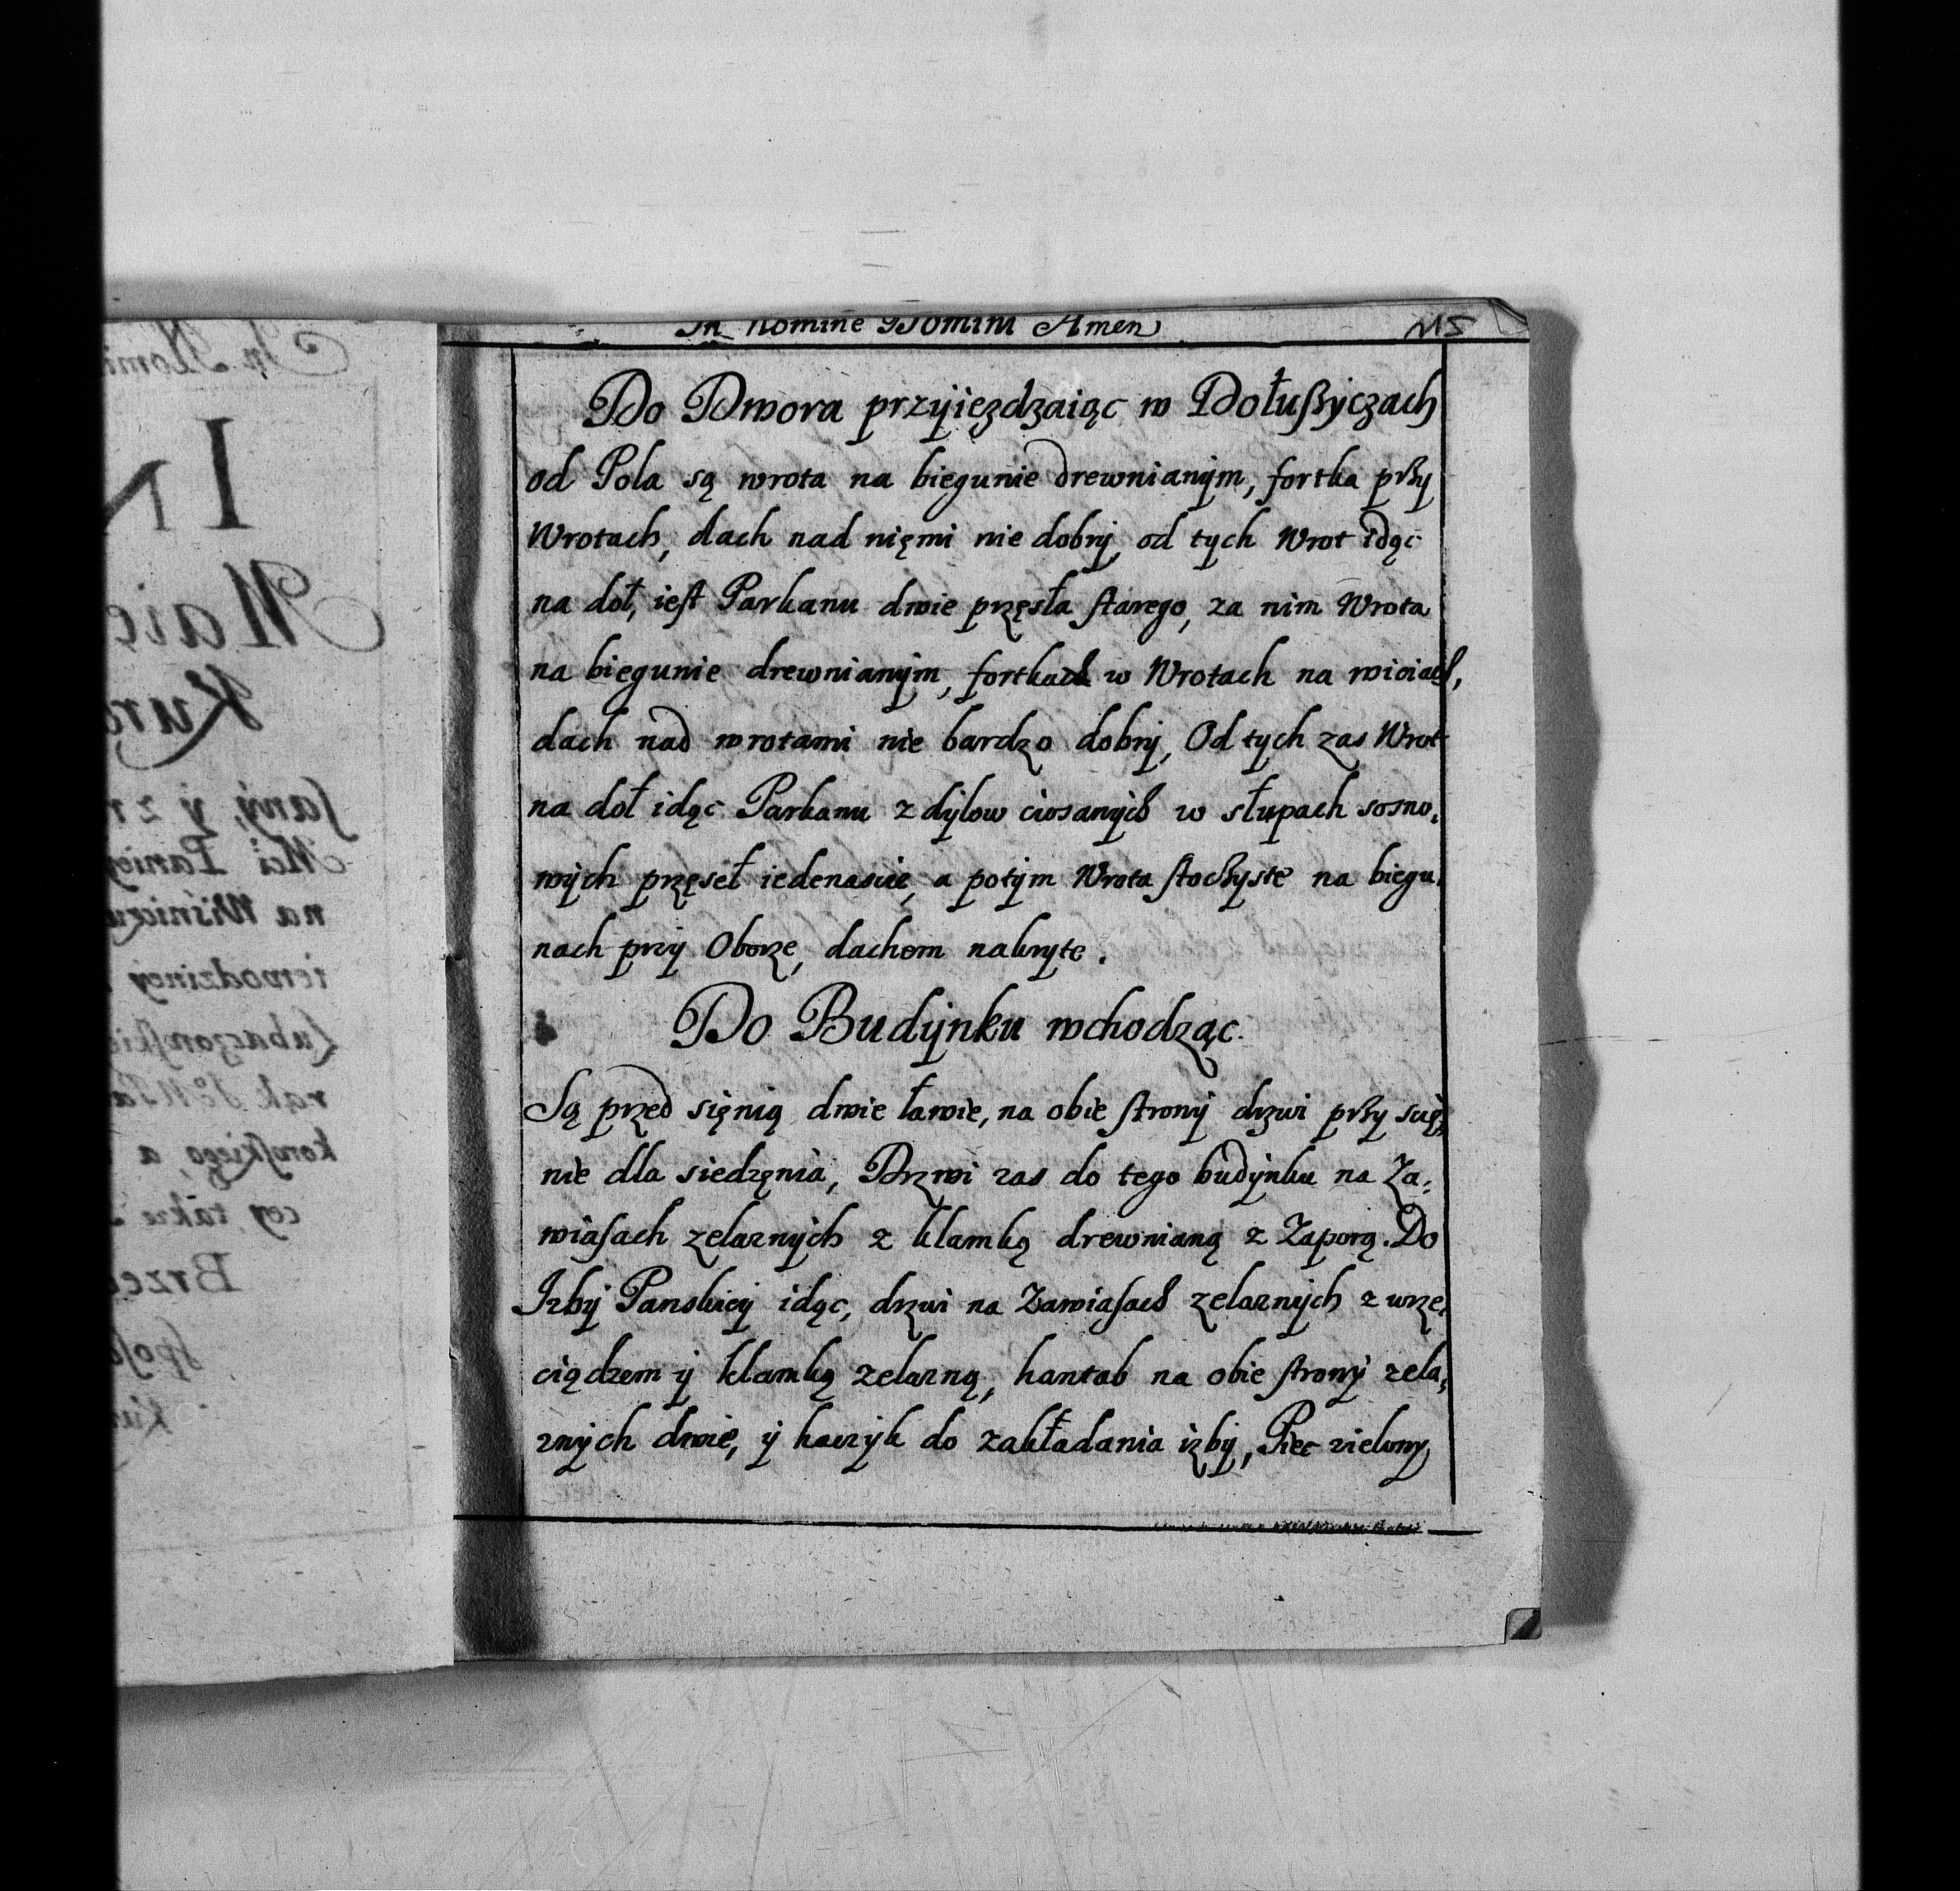 In Nomine Domini Amen
Do Dwora przyiezdzaiąc w Dołuszyczach
od Pola są wrota na biegunie drewnianym, fortka przy
Wrotach, dach nad nięmi nie dobry, od tych Wrot idąc
na doł, iest Parkanu dwie pręsła starego, za nim Wrota
na biegunie drewnianym, fortka w Wrotach na wiciach,
dach nad wrotami nie bardzo dobry, Od tych zas Wrot
na doł idąc Parkanu z dylow ciosanych w słupach sosno,
wych pręseł iedenascie, a potym Wrota stoczyste na biegu,
nach przy Oborze, dachem nakryte.
Do Budynku wchodząc.
Są przed sięnią dwie ławie, na obie strony drzwi przy scię,
nie dla siedzęnia, Drzwi zas do tego budynku na Za,
wiasach zelaznych z klamką drewnianą z Zaporą. Do
Izby Panskiey idąc, drzwi na Zawiasach zelaznych z wrze,
ciądzem y klamką zelazną, hantab na obie strony zela,
znych dwie, y haczyk do zakładania izby, Piec zielony